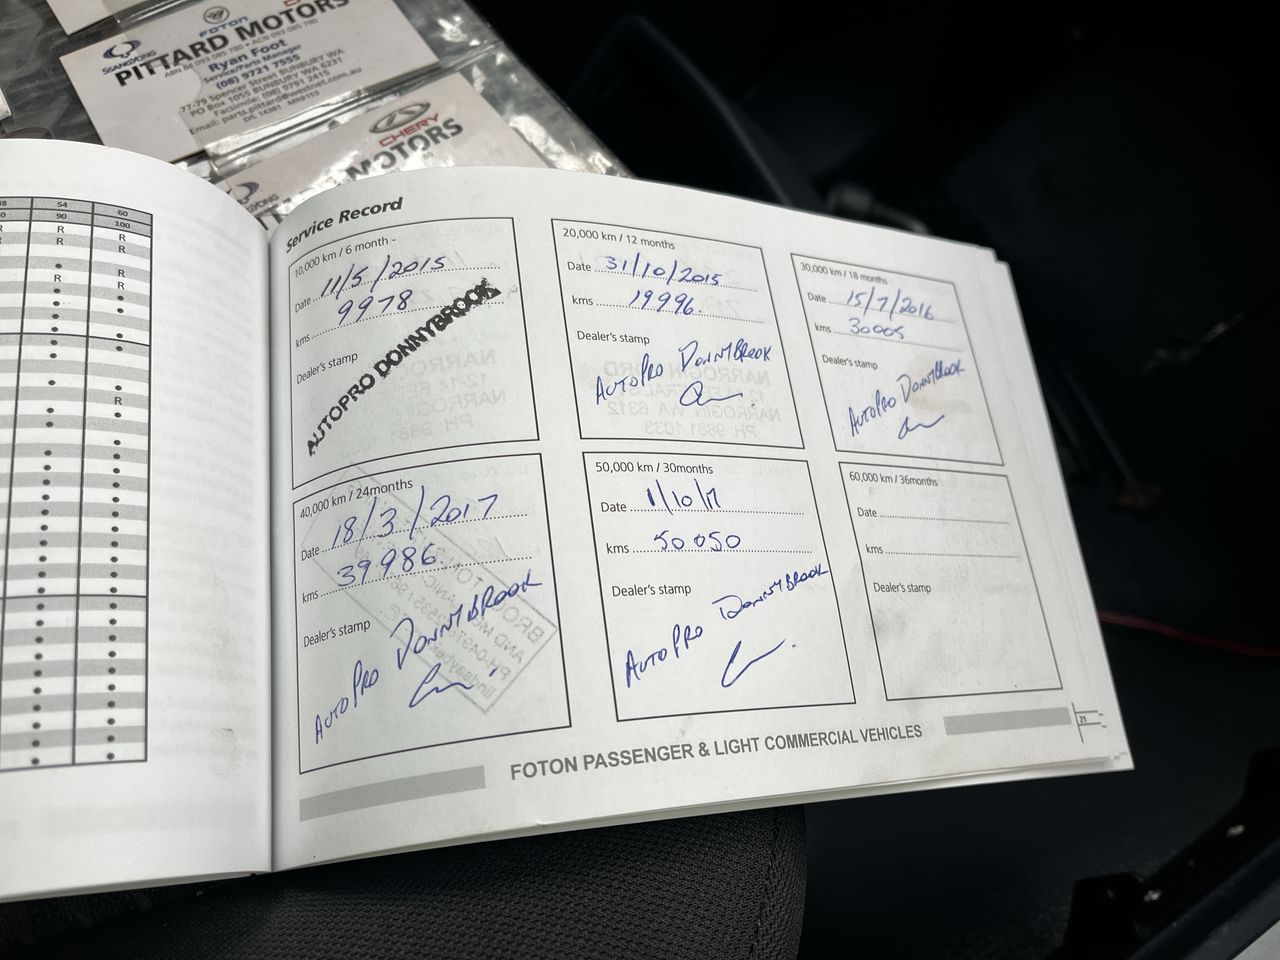 FOTON
SSANGYONG
PITTARD MOTORS
ABN 84 093 085 780 • ACN 093 085 780
Ryan Foot
Service/Parts Manager
(08) 9721 7555
77-79 Spencer Street BUNBURY WA
PO Box 1055 BUNBURY WA 6231
Facsimile: (08) 9791 2415
Email: parts.pittard@westnet.com.au
D/L 14381 MRB153
CHERY
MOTORS
54 60
90 100
R R
R R
R R
R
R
Service Record
10,000 km / 6 month -
Date 11/5/2015
kms 9978
Dealer's stamp
AUTOPRO DONNYBROOK
20,000 km / 12 months
Date 31/10/2015
kms 19996.
Dealer's stamp
AUTOPRO DONNYBROOK
30,000 km / 18 months
Date 15/7/2016
kms 30005
Dealer's stamp
AUTOPRO DONNYBROOK
40,000 km / 24months
Date 18/3/2017
kms 39986
Dealer's stamp
AUTOPRO DONNYBROOK
50,000 km / 30months
Date 1/10/17
kms 50050
Dealer's stamp
AUTOPRO DONNYBROOK
60,000 km / 36months
Date
kms
Dealer's stamp
FOTON PASSENGER & LIGHT COMMERCIAL VEHICLES
21